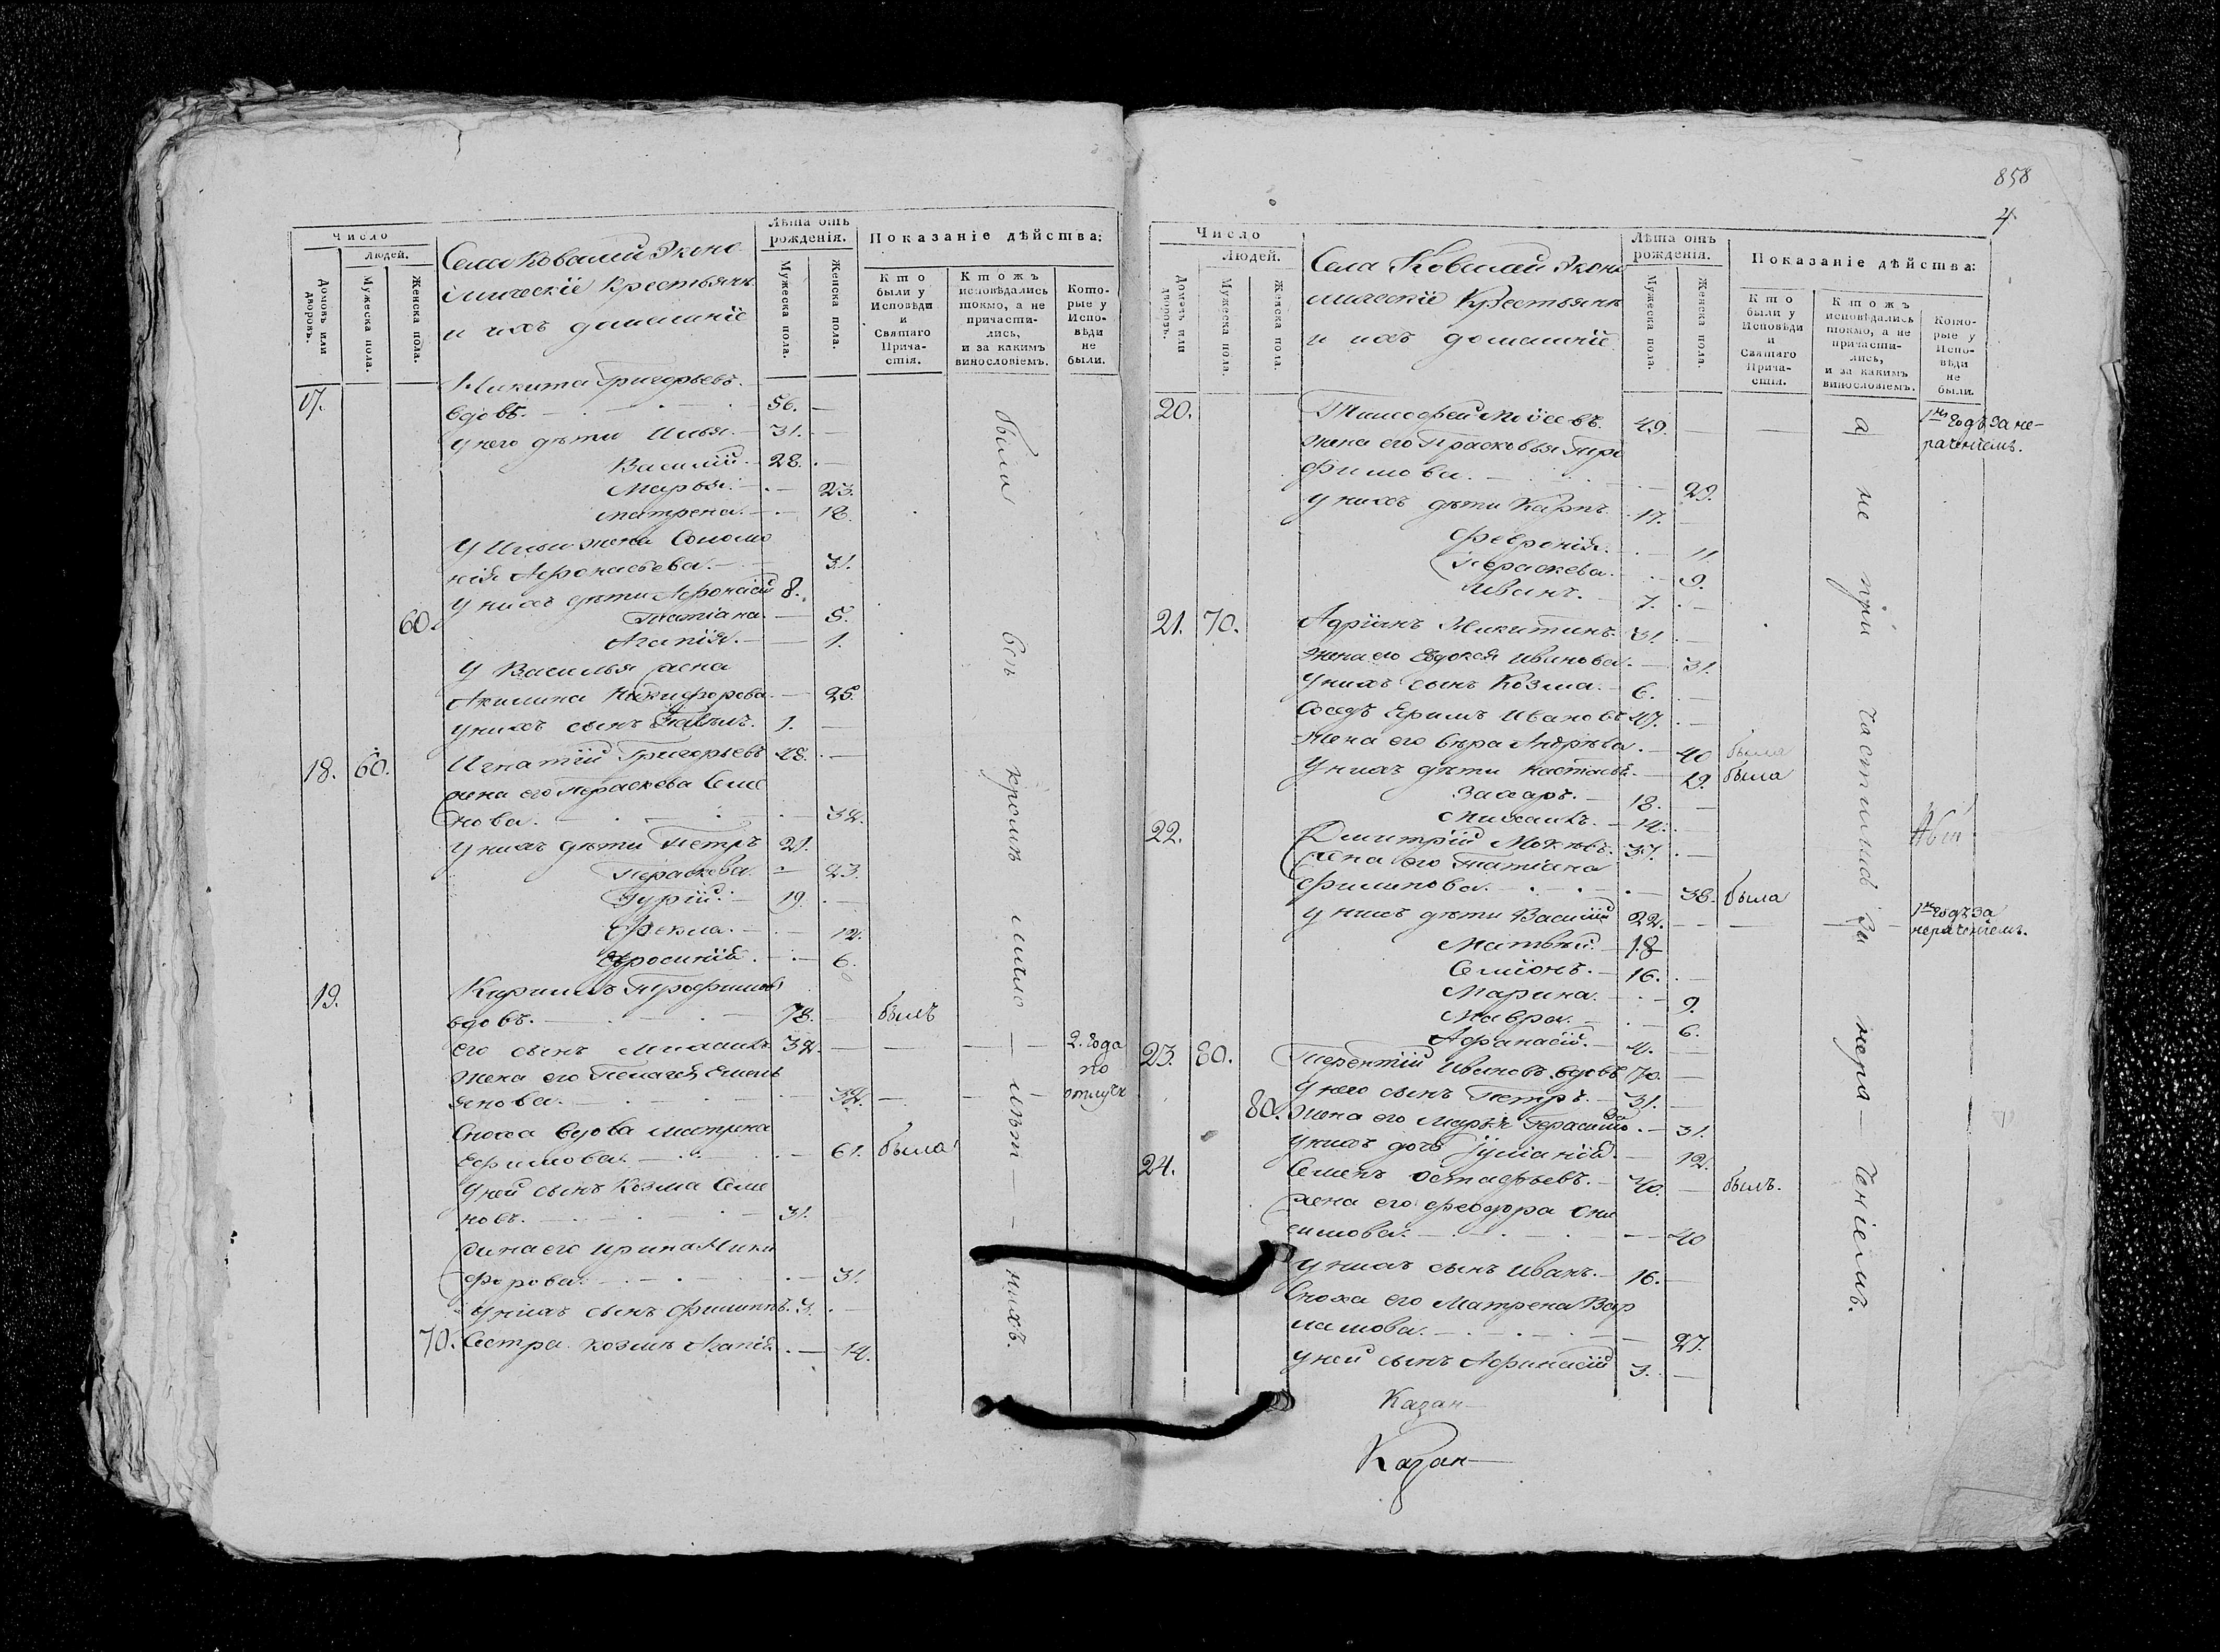 Число
Людей.
Домовъ или дворовъ.
Мужеска пола.
Женска пола.
Села Ковалей Эконо
мическіе крестьяне
и ихъ домашніе
Лѣта отъ рожденія.
Мужеска пола.
Женска пола.
Показаніе дѣйства:
Кто были у Исповѣди и Святаго Причастія.
Ктожъ исповѣдались токмо, а не причастились, и за какимъ винословіемъ.
Которые у Исповѣди не были.
17. Никита Григорьевъ
вдовъ. 56.
у него дѣти Илья. 31.
Василій. 28.
Марья. 23.
Матрена. 18.
У Ильи жена Соломо
нія Афонасьева. 31.
у нихъ дѣти Афонасій 8.
60. Татіана. 5.
Агапія. 1.
У Василья жена
Акилина Никифорова. 25.
у нихъ сынъ Павелъ. 1.
18. 60. Игнатій Григорьевъ 48.
жена его Параскева Семе
нова. 34.
у нихъ дѣти Петръ 21.
Параскева. 23.
Гурій. 19.
Ѳекла. 12.
6.
19. Кирилъ Трофимовъ
вдовъ. 78. былъ
его сынъ Михаилъ 34. 2. года
жена его Пелагея Емель по
янова. 34. отлучк
Сноха вдова Матрена
Ефимова. 61. была
У ней сынъ Козма Семе
новъ. 31.
жена его Ирина Ники
форова. 31.
у нихъ сынъ Филиппъ. 3.
70. Сестра Козмѣ Агапія. 14.
были
всѣ
кромѣ
нихъ.
858
4.
Число
Людей.
Домовъ или дворовъ.
Мужеска пола.
Женска пола.
Села Ковалей Эконо
мическіе крестьяне
и ихъ домашніе
Лѣта отъ рожденія.
Мужеска пола.
Женска пола.
Показаніе дѣйства:
Кто были у Исповѣди и Святаго Причастія.
Ктожъ исповѣдались токмо, а не причастились, и за какимъ винословіемъ.
Которые у Исповѣди не были.
20. Тимофей Моѵсеевъ. 49. годъ за не-
жена его Прасковья Тро раченіемъ.
фимова. 29.
у нихъ дѣти Карпъ. 17.
Февронія. 11.
Параскева. 9.
Иванъ. 7.
21. 70. Адріянъ Никитинъ. 31.
жена его Евдокея Иванова. 31.
У нихъ сынъ Козма. 6.
Сосѣдъ Ефимъ Ивановъ 47.
жена его Вѣра Андрѣева. 40 была
У нихъ дѣти Настасья. 19. была
Захаръ. 18.
Михаилъ. 14.
22. Дмитрій 37.
жена его Татіана
Филипова. 38. была
у нихъ дѣти Василій 22. годъ за
Матвей. 18 нераченіемъ.
Семіонъ. 16.
Марина. 9.
Мавра. 6.
Афанасій. 4.
23. 80. Терентій Ивановъ вдовъ 70.
У него сынъ Петръ. 31.
80. жена его Марья Герасимова. 31.
у нихъ дочь Іуліанія. 12.
24. Семенъ Остафьевъ. 40. былъ.
жена его Феодора Они
симова. 40
У нихъ сынъ Иванъ. 16.
Сноха его Матрена Вар
ламова. 27.
У ней сынъ Афанасій 3.
а
не
при
частились
за
чтеніемъ.
Казан
Казан